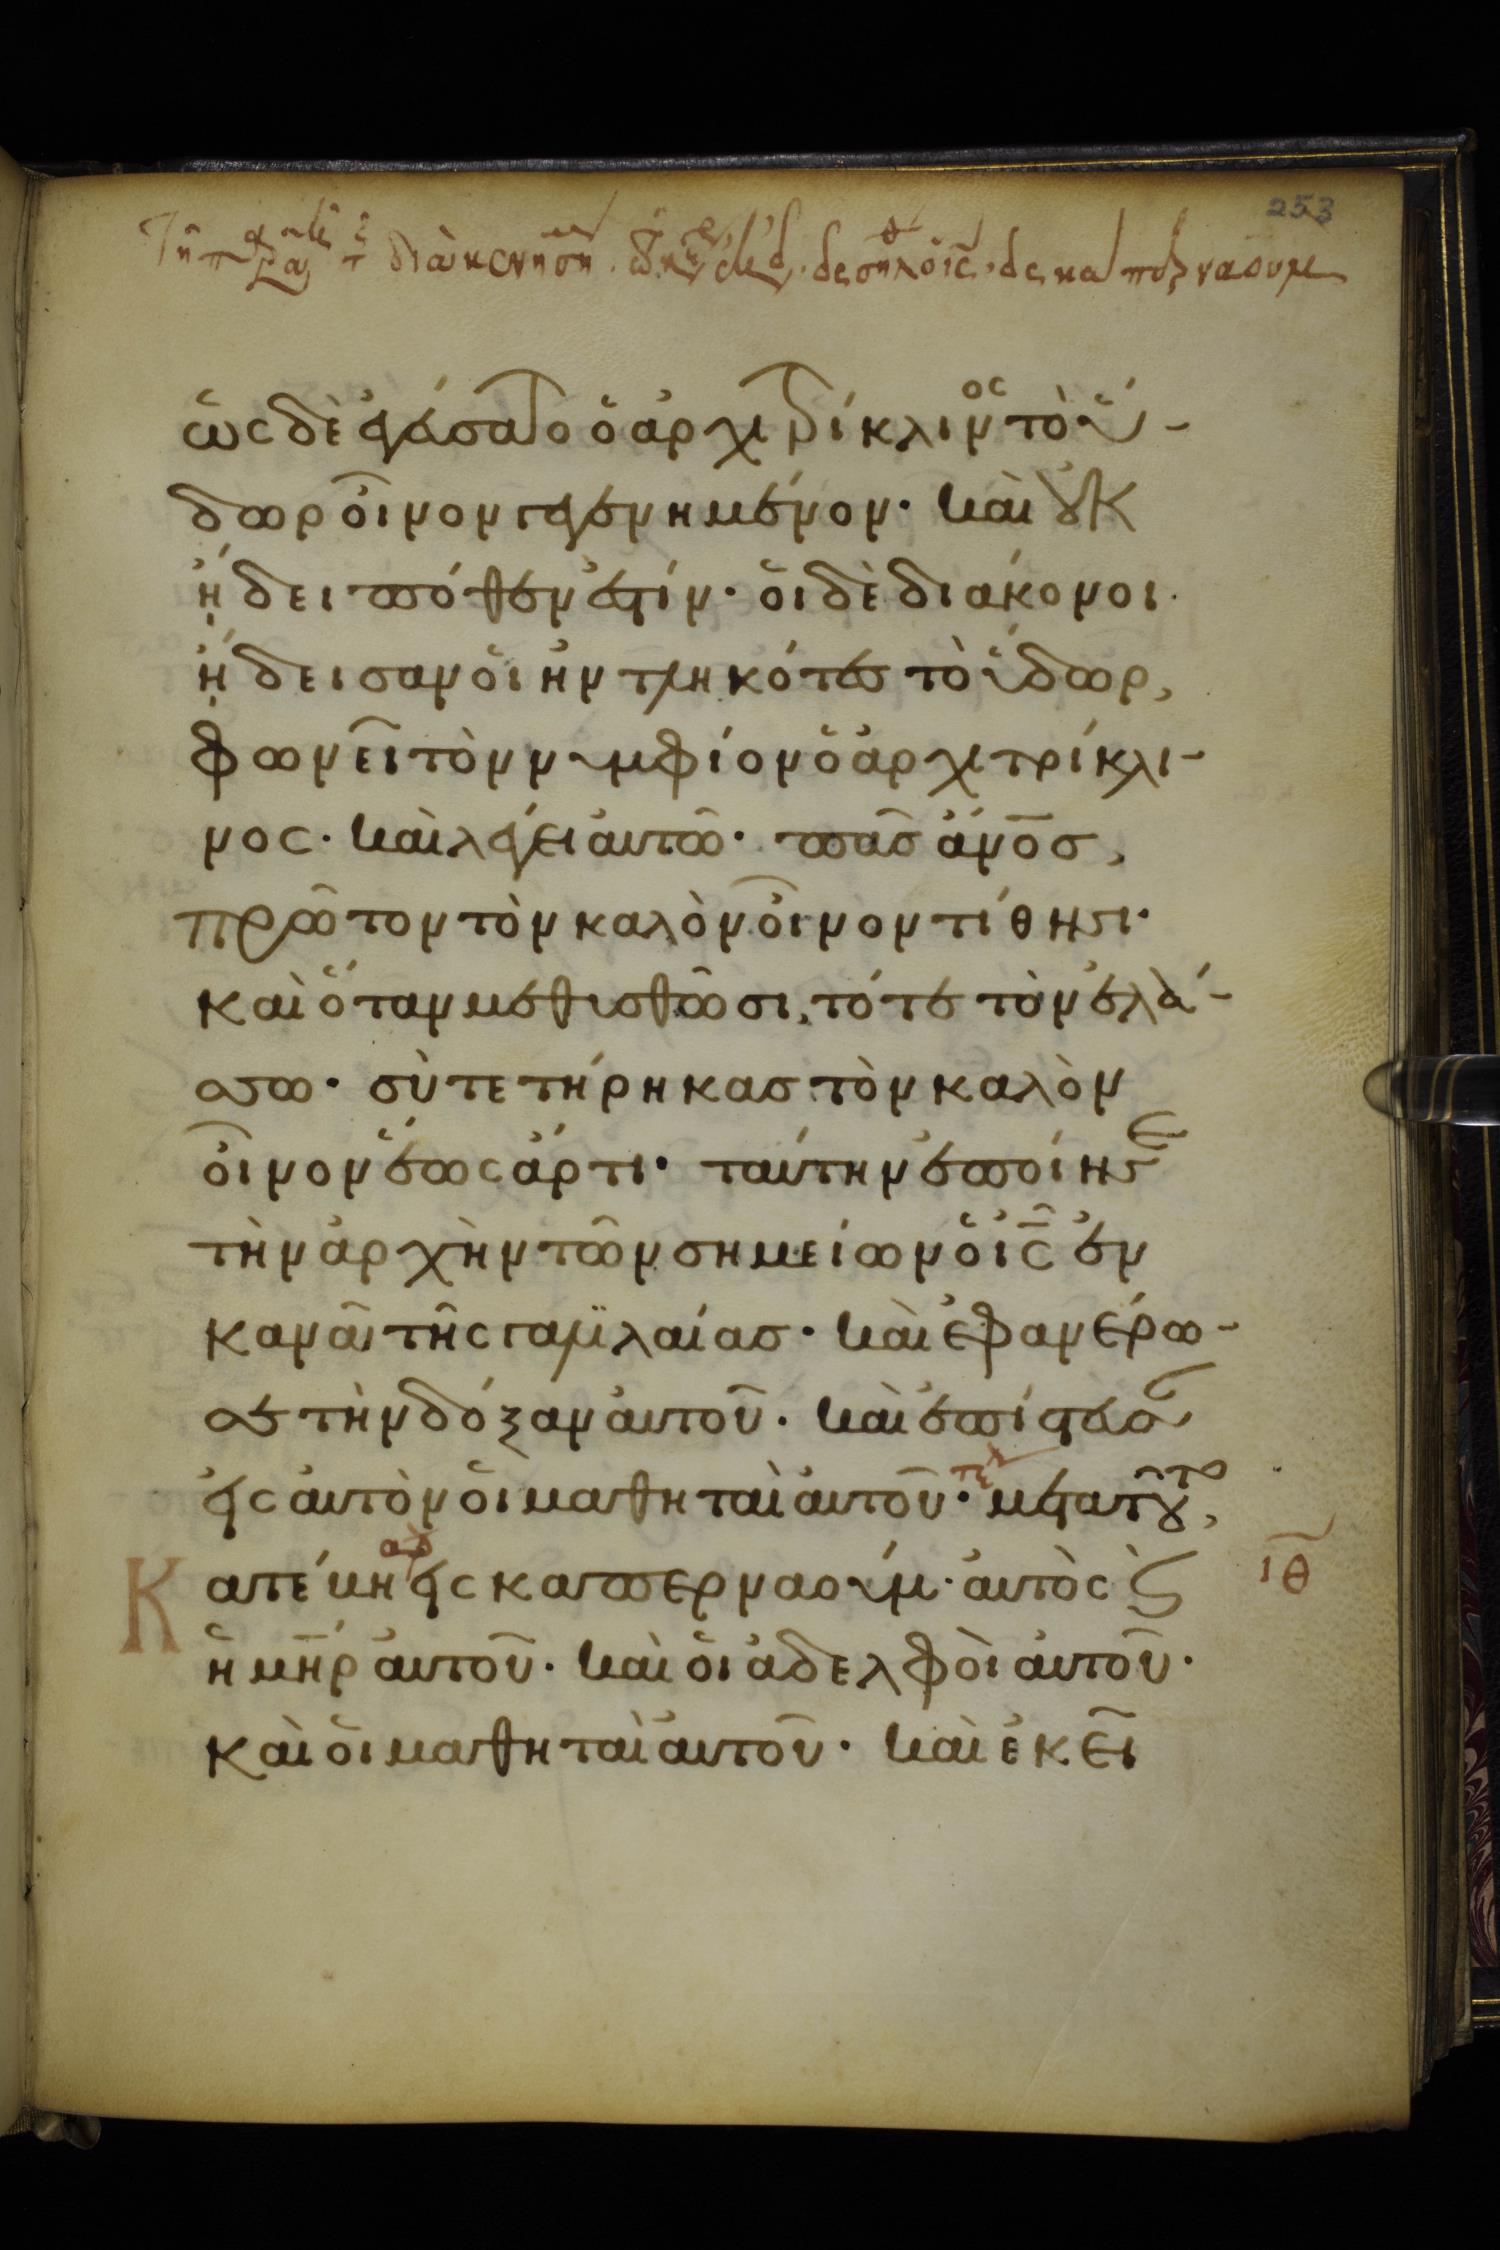 253
Τῇ παρα τ διακινησι
ὡς δὲ ἐγεύσατο ὁ ἀρχιτρίκλινος τὸ ὕ-
δωρ οἶνον γεγενημένον· καὶ οὐκ
ᾔδει πόθεν ἐστίν· οἱ δὲ διάκονοι
ᾔδεισαν οἱ ἠντληκότες τὸ ὕδωρ,
φωνεῖ τὸν νυμφίον ὁ ἀρχιτρίκλι-
νος· καὶ λέγει αὐτῶ· πᾶς ἄνος,
πρῶτον τὸν καλὸν οἶνον τίθησι·
καὶ ὅταν μεθυσθῶσι, τότε τὸν ἐλά-
σσω· σὺ τετήρηκας τὸν καλὸν
οἶνον ἕως ἄρτι· ταύτην ἐποίησε
τὴν ἀρχὴν τῶν σημείων ὁ ις ἐν
κανᾶ τῆς γαλιλαίας· καὶ ἐφανέρω-
σε τὴν δόξαν αὐτοῦ· καὶ ἐπίστευσαν
εἰς αὐτὸν οἱ μαθηταὶ αὐτοῦ· τελ μετὰ τοῦτο,
Κατέβη εἰς καπερναούμ· αὐτὸς καὶ
ἡ μηρ αὐτοῦ· καὶ οἱ ἀδελφοὶ αὐτοῦ·
καὶ οἱ μαθηταὶ αὐτοῦ· καὶ ἐκεῖ
ιθ